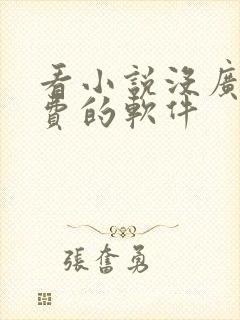 看小說沒廣
費的軟件
張奮勇